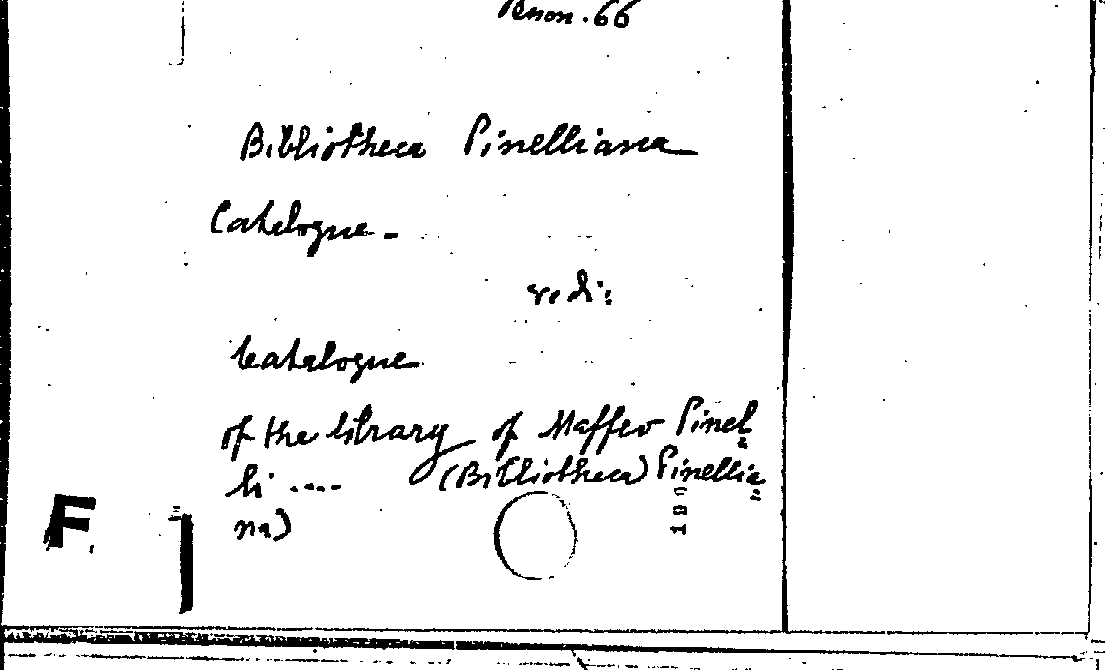 66
Bibliotheca Pinelliana
Catalogue -
vedi:
Catalogue
of the library of Maffeo Pinel=
li .... (Bibliotheca) Pinellia=
na)
F